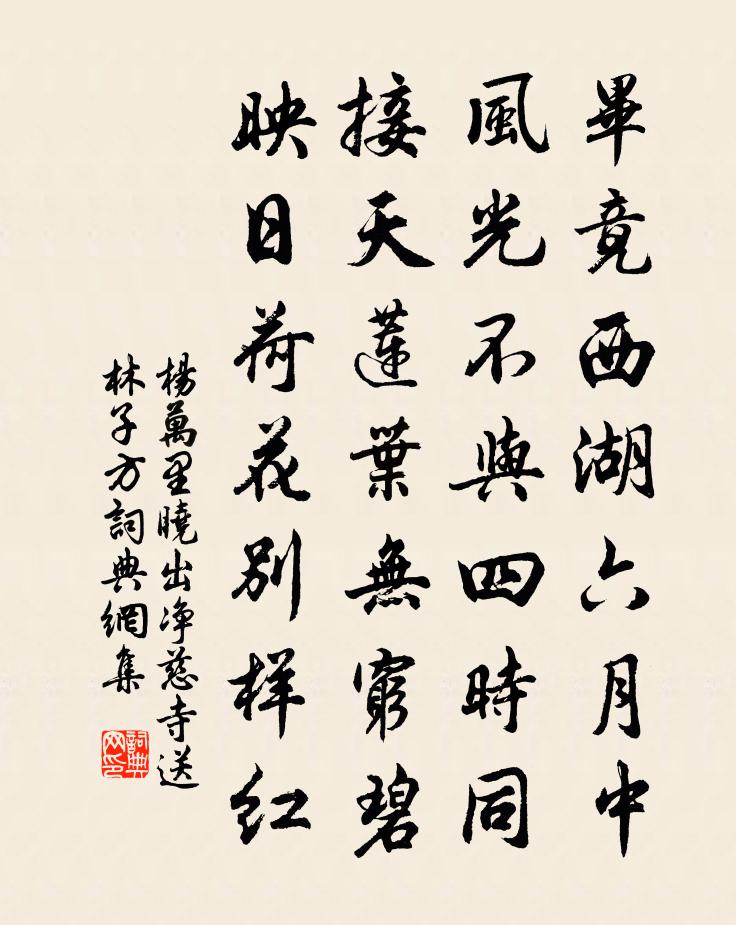 畢竟西湖六月中
風光不與四時同
接天蓮葉無窮碧
映日荷花別样紅
楊萬里曉出净慈寺送
林子方詞典網集
詞典网印